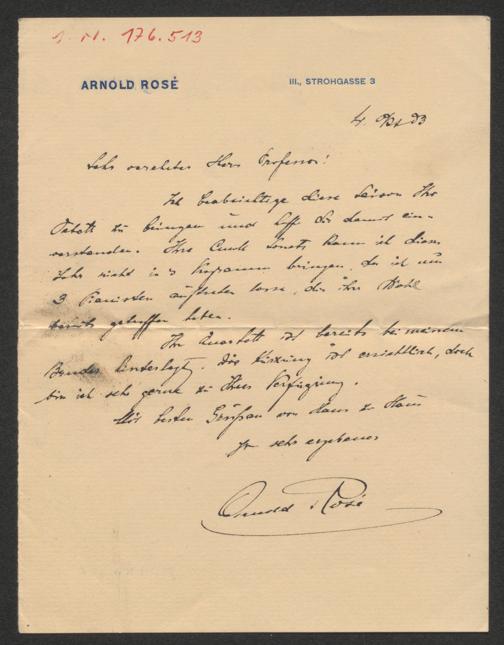 I. N. 176.513
ARNOLD ROSÉ
III., STROHGASSE 3
4. Okt 33
Sehr verehrter Herr Professor!
Ich beabsichtige diese Saison Ihr
zu bringen und hoffe Sie damit ein-
verstanden. Ihre Sonate kann ich dieses
Jahr nicht in's Programm bringen, da ich nur
3 Pianisten auftreten lasse, die ihre Wahl
bereits getroffen haben.
Ihr Quartett ist bereits bei meinem
Bruder hinterlegt. Die Kürzung ist ersichtlich, doch
bin ich sehr gerne zu Ihrer Verfügung.
Mit besten Grüßen von Haus zu Haus
Ihr sehr ergebener
Arnold Rosé